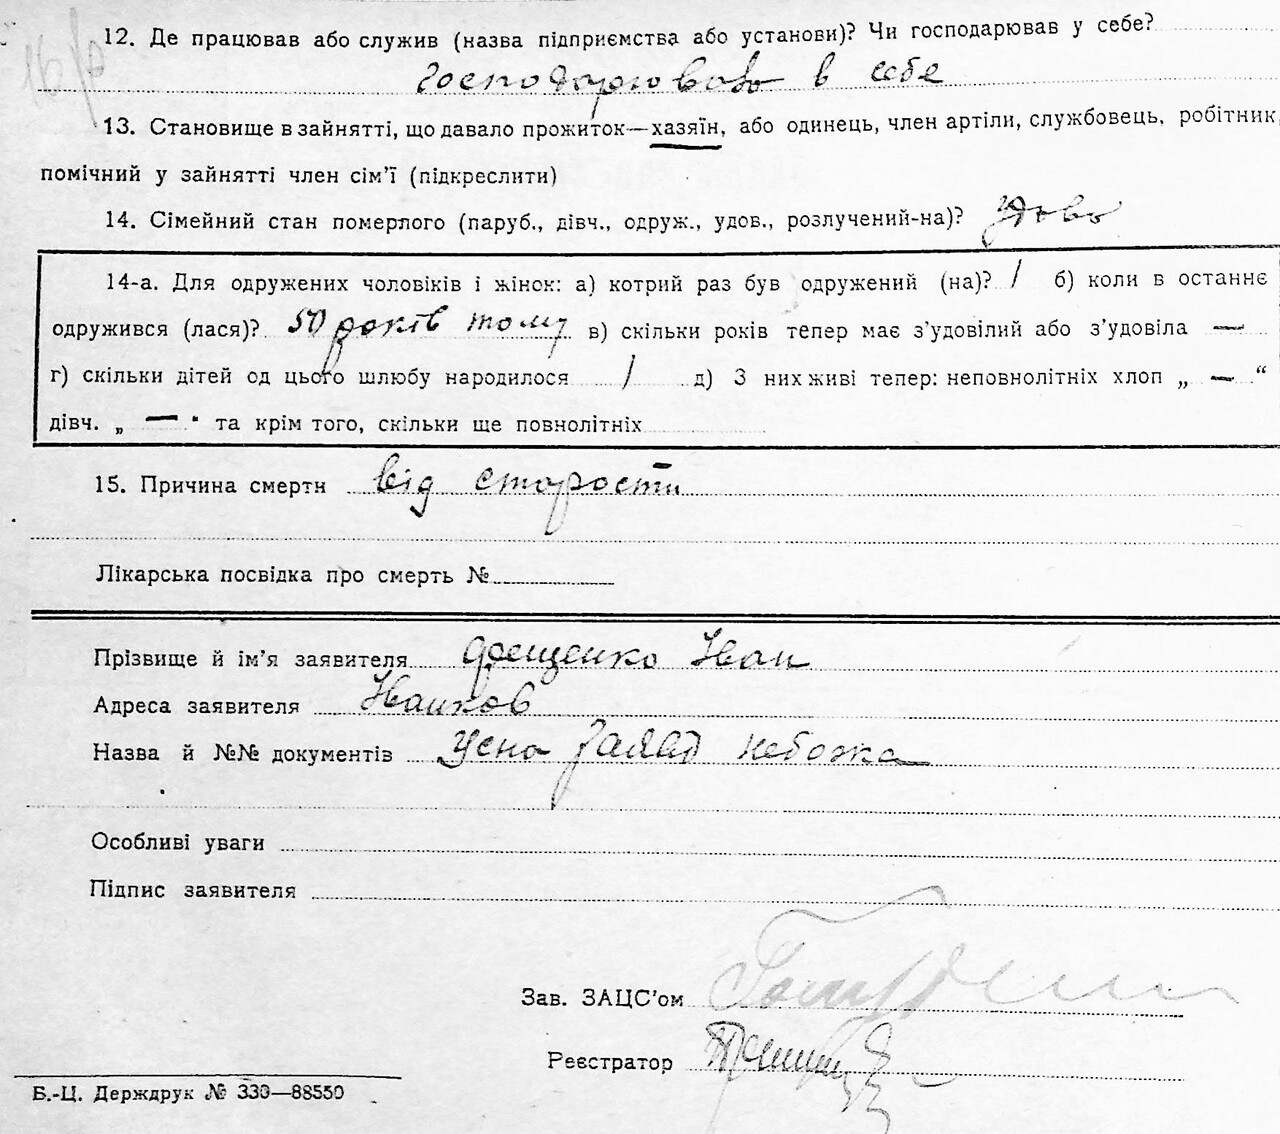 12. Де працював або служив (назва підприємства або установи)? Чи господарював у себе?
господорював в себе
13. Становище в зайнятті, що давало прожиток—хазяїн, або одинець, член артіли, службовець, робітник,
помічний у зайнятті член сім'ї (підкреслити)
14. Сімейний стан померлого (паруб., дівч., одруж., удов., розлучений-на)? удово
14-а. Для одружених чоловіків і жінок: а) котрий раз був одружений (на)? 1 б) коли в останнє
одружився (лася)? 50 років тому в) скільки років тепер має з'удовілий або з'удовіла —
г) скільки дітей од цього шлюбу народилося 1 д) З них живі тепер: неповнолітніх хлоп „ — “
дівч. „ — " та крім того, скільки ще повнолітніх
15. Причина смерти від старости
Лікарська посвідка про смерть №
Прізвище й ім'я заявителя Іван
Адреса заявителя Іванков
Назва й №№ документів Усно заявив небожа
Особливі уваги
Підпис заявителя
Зав. ЗАЦС'ом
Реєстратор
Б.-Ц. Держдрук № 330—88550